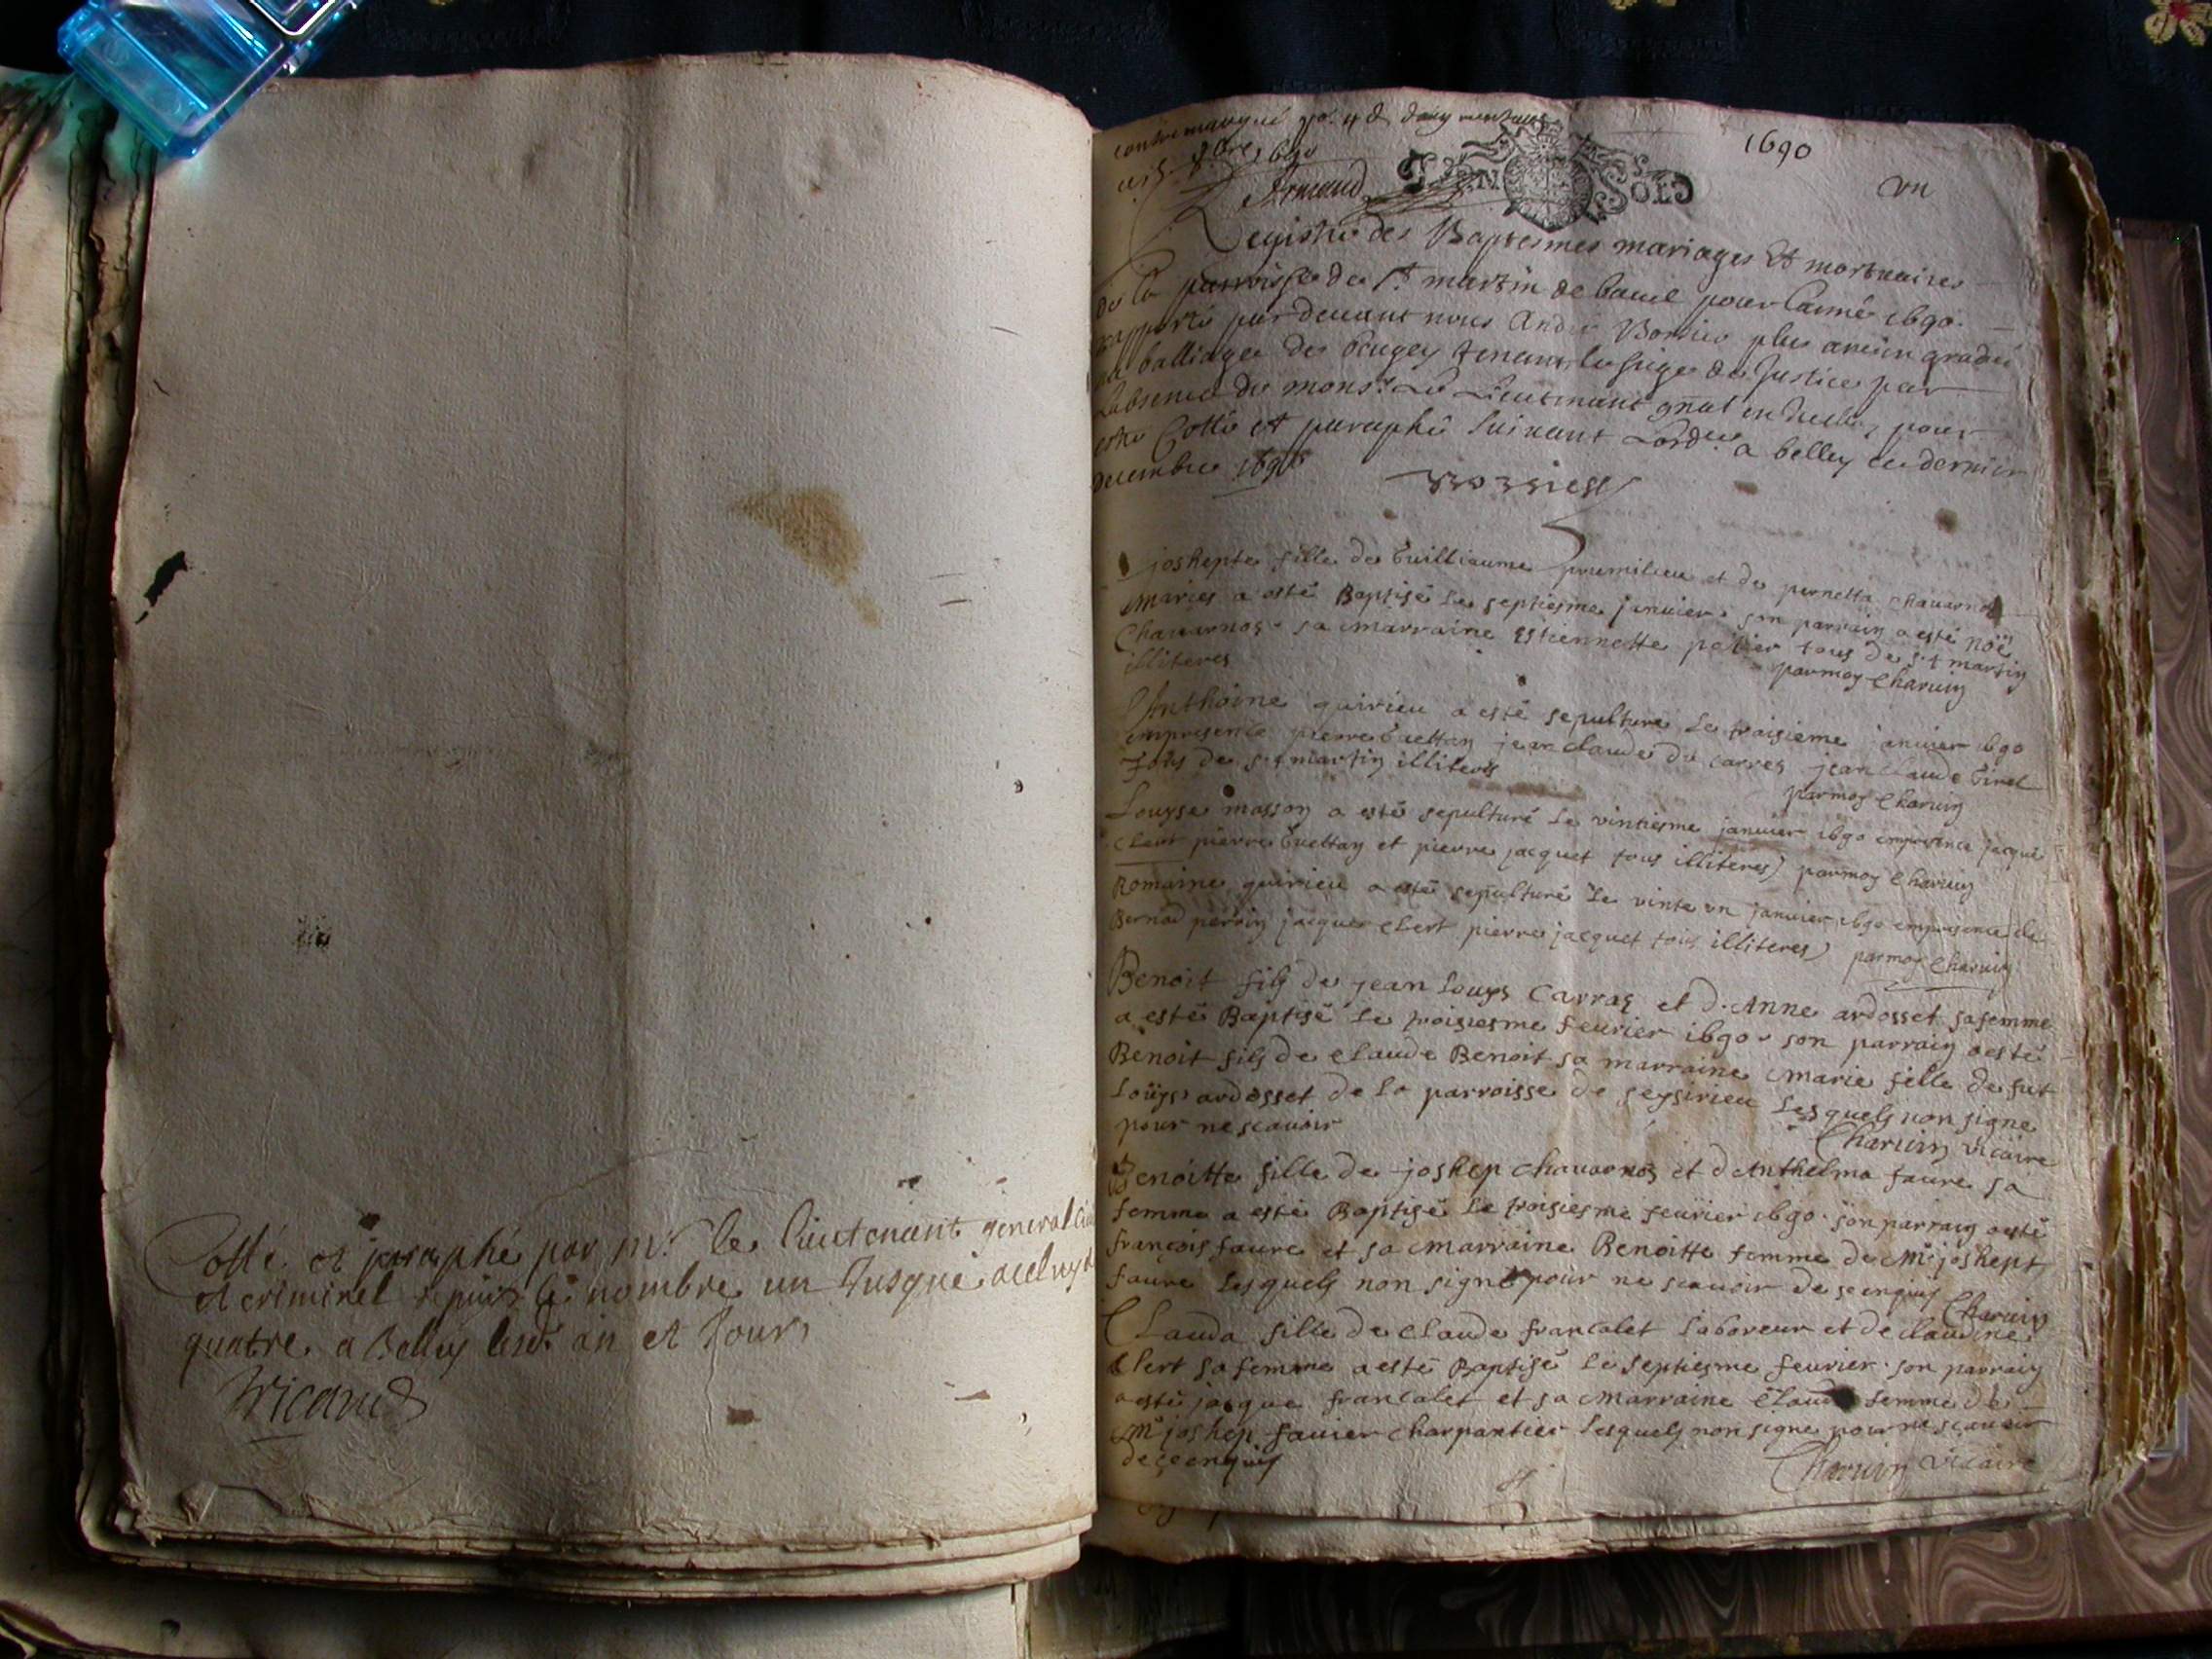 Cotté et paraphé par mr. le lieutenant general
et criminel depuis le nombre un Jusque
quatre a Belley lesd. an et Jour
1690
vn
SOLS
Registre des Baptesmes mariages Et mortuaires
de la parroisse de st martin de bauel pour l'année 1690
pardeuant nous André plus antien gradué
au balliage de bugey tenant le siege de Justice par
L'absence de monsr. Le Lieutenant gnal pour
estre Cotté et paraphé suiuant a belley ce dernier
decembre
joshepte fille de Guilliaume premilieu et de pernetta chauarnos
maries a esté Baptisé Le septiesme januier son parrain a esté noë
Chauarnos sa marraine Estiennette tous de st martin
illiteres parmoy Charuin
Anthoine quirieu a esté sepulturé Le troisieme januier 1690
empresence pierre jean claude du carres jean claude
tous de st martin illiteres parmoy Charuin
Louyse masson a esté sepulturé Le vintiesme januier 1690 empresence jacque
Clert pierre et pierre jacquet tous illiteres parmoy Charuin
Romaine quirieu a esté sepulturé Le vinte vn januier 1690 empresence de
Bernad perrin jacques Clert pierre jacquet tous illiteres parmoy Charuin
Benoit fils de jean Louys Carras et d'Anne ardosset sa femme
a esté Baptisé Le troisiesme feurier 1690 son parrain a esté
Benoit fils de Claude Benoit sa marraine marie fille de fut
Loüys ardosset de la parroisse de seysirieu Lesquels non signe
pour ne scauoir Charuin vicaire
Benoitte fille de joshep chauarnos et d'Anthelma faure sa
femme a esté Baptisé Le troisiesme feurier 1690 son parrain a esté
françois faure et sa marraine Benoitte femme de Me joshept
faure Lesquels non signe pour ne scauoir de ce enquis Charuin
Clauda fille de Claude francalet Laboreur et de claudine
Clert sa femme a esté Baptisé Le septiesme feurier son parrain
a esté jacque francalet et sa marraine Claude femme de
Me joshep fauier charpantier Lesquels non signe pour ne scauoir
de ce enquis Charuin vicaire